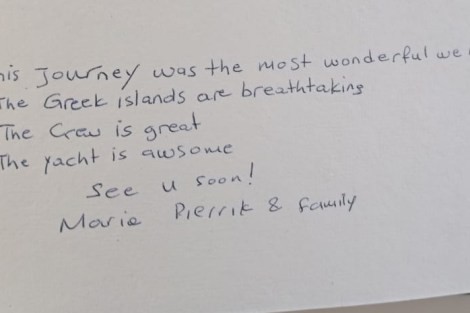 his Journey was the most wonderful we
The Greek islands are breathtaking
The Crew is great
The yacht is awsome
See u soon!
Marie Pierrik & family